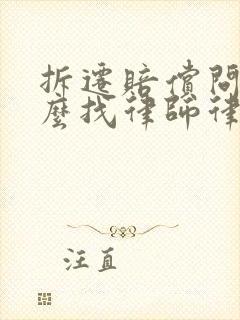 拆遷賠償問
麼找律師律
汪直